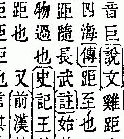 音巨說文雞距
四海傳距至也
距隨長武註始
物過也史記王
距也又前漢